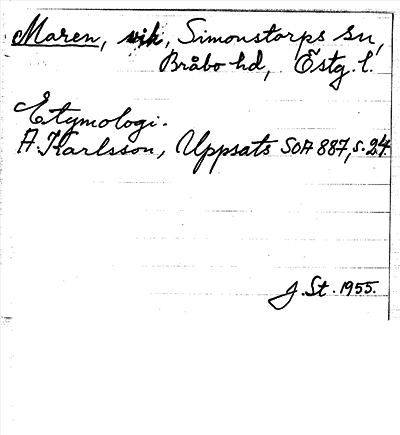 Maren, vik, Simonstorps sn,
Bråbo hd, Östg. l.
Etymologi.
A. Karlsson, Uppsats SOA 887, s. 24.
J. St. 1955.